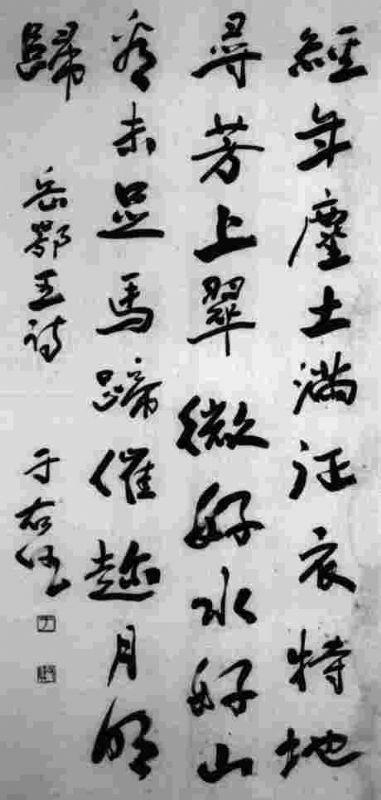 經年塵土滿征衣特地
尋芳上翠微好水好山
看未足馬蹄催趂月明
歸
岳鄂王詩
于右任